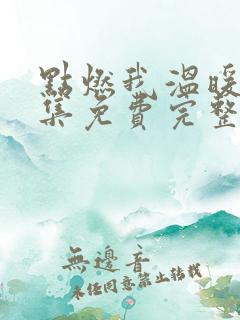 點燃我溫暖
集免費完整
無邊音
未經同意禁止轉載